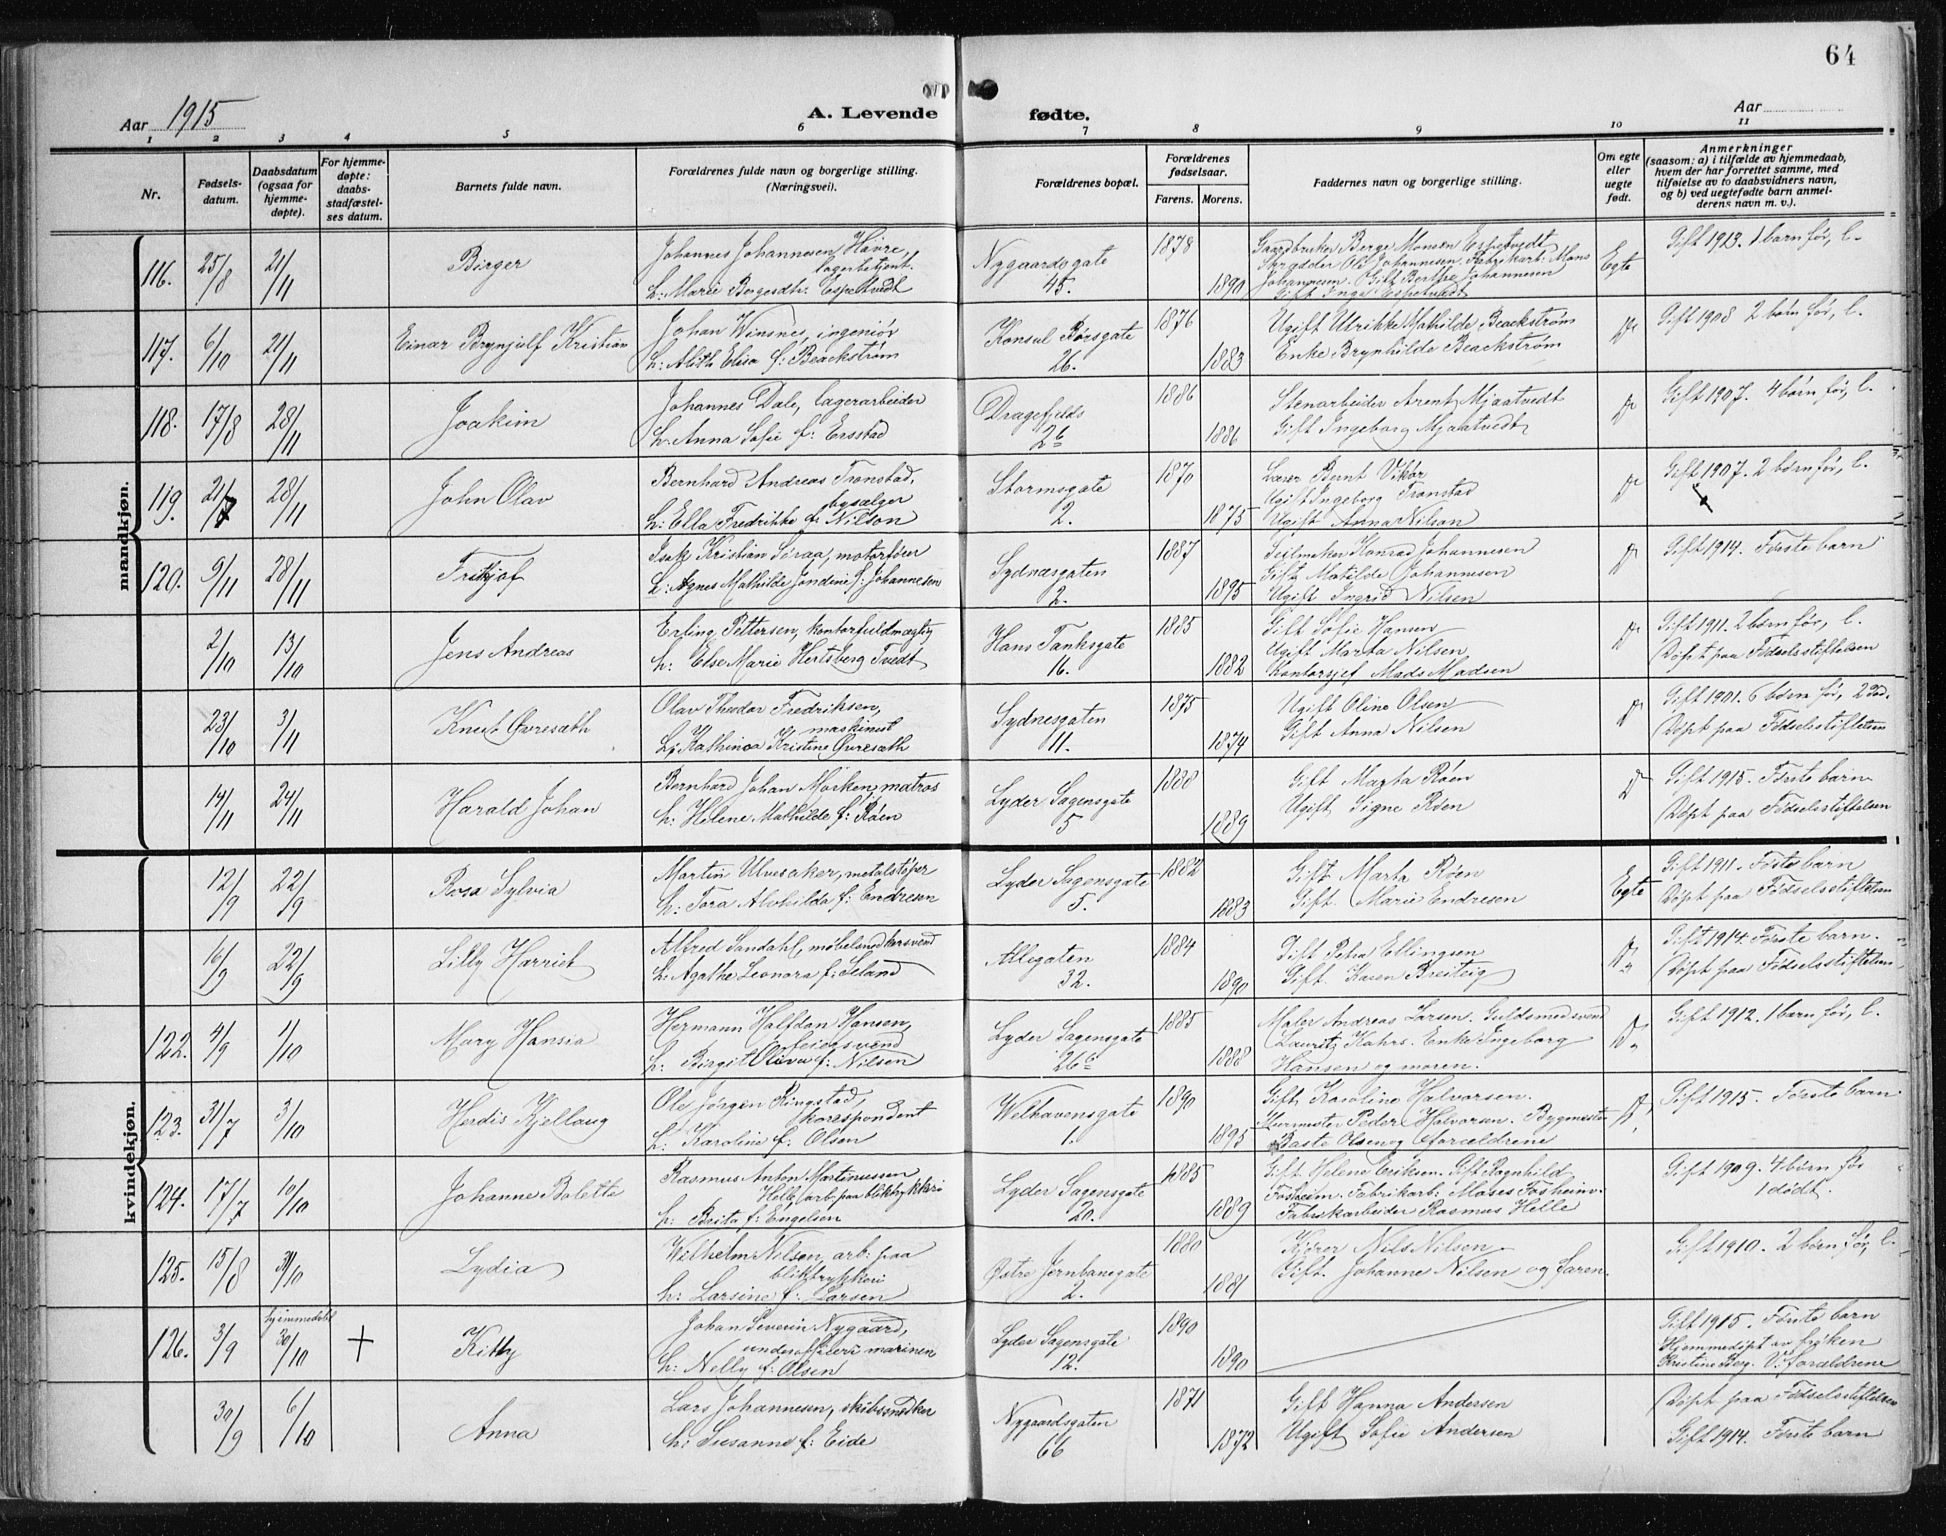 64
Aar 1915
A. Levende fødte.
Aar
1 2 3 4 5 6 7 8 9 10 11
Nr.
Fødsels-
datum.
Daabsdatum
(ogsaa for
hjemme-
døpte).
For hjemme-
døpte:
daabs-
stadfæstel-
ses datum.
Barnets fulde navn.
Forældrenes fulde navn og borgerlige stilling.
(Næringsvei).
Forældrenes bopæl.
Forældrenes
fødselsaar.
Farens. Morens.
Faddernes navn og borgerlige stilling.
Om egte
eller
uegte
født.
Anmerkninger
(saasom: a) i tilfælde av hjemmedaab,
hvem der har forrettet samme, med
tilføielse av to daabsvidners navn,
og b) ved uegtefødte barn anmel-
derens navn m. v.).
mandkjøn.
116. 25/8 21/11 Birger
Johannes Johannesen Havre,
lagerbetjent.
h: Marie Bergesdtr. Espetvedt
Nygaardsgate
45.
1878
1890
Gaardbruker Berge Monsen Espetvedt
Skrædder Ole Johannesen. Fabrikarb: Mons
Johannesen. Gift Berthe Johannesen
Gift Inga Espetvedt
Egte
Gift 1913. 1 barn før, l.
117. 6/10 21/11 Einar Brynjulf Kristian
Johan Winsnes, ingeniør
h: Alith Elisa f: Beackstrøm
Konsul Børsgate
26.
1876
1883
Ugift Ulrikke Mathilde Beackstrøm
Enke Brynhilde Beackstrøm
Gift 1908 2 børn før, l.
118. 17/8 28/11 Joakim
Johannes Dale, lagerarbeider
h: Anna Sofie f: Ersstad
Dragefjelds
26
1886
1886
Stenarbeider Arent Mjaatvedt
Gift Ingeborg Mjaatvedt
Gift 1907. 4 børn før, l.
119. 21/7 28/11 John Olav
Bernhard Andreas Tronstad,
bysælger
h: Ella Fredrikke f: Nilson
Stormsgate
2.
1870
1875
Lærer Bernt Vikør
Ugift Ingeborg Tronstad
Ugift Anna Nilson
Gift 1907. 2 børn før, l.
120. 9/11 28/11 Fritjof
Isak Kristian Søraa, motorfører
h: Agnes Mathilde Jondine f: Johannesen
Sydnæsgaten
2.
1887
1895
Seilmaker Konrad Johannesen
Gift Matilde Johannesen
Ugift Ingrid Nilsen
Gift 1914. Første barn
2/10 13/10 Jens Andreas
Erling Pettersen, kontorfuldmægtig
h: Else Marie Hertsberg Tvedt
Hans Tanksgate
16.
1885
1882
Gift Sofie Hansen
Ugift Marta Nilsen
Kontorsjef Mads Madsen
Gift 1911. 2 børn før, l.
(Døpt paa Fødselsstiftelsen
23/10 3/11 Knut Øvresath
Olav Theodor Fredriksen,
maskinist
h: Kathinca Kristine Øvresath
Sydnesgaten
11.
1875
1874
Ugift Oline Olsen
Gift Anna Nilsen
Gift 1901. 6 børn før, 2 død.
(Døpt paa Fødselsstiftelsen
14/11 24/11 Harald Johan
Bernhard Johan Mørken, matros
h: Helene Mathilde f: Røen
Lyder Sagensgate
5
1888
1889
Gift Marta Røen
Ugift Signe Røen
Gift 1915. Første barn
(Døpt paa Fødselsstiftelsen
kvindekjøn.
12/9 22/9 Rosa Sylvia
Martin Ulvesaker, metalstøper
h: Tora Alvhilda f: Endresen
Lyder Sagensgate
5.
1882
1883
Gift Marta Røen
Gift. Marie Endresen
Egte
Gift 1911. Første barn
Døpt paa Fødselsstiftelsen
16/9 22/9 Lilly Harriet
Alfred Sandahl, møbelsnedkersvend
h: Agathe Leonora f: Seland
Allegaten
32.
1884
1890
Gift Petra Ellingsen
Gift. Karen Breiteig
Gift 1914. Første barn.
(Døpt paa Fødselsstiftelsen
122. 4/9 1/10 Mary Hansia
Hermann Halfdan Hansen,
feiersvend
h: Birgit Oliva f: Nilsen
Lyder Sagensgate
26 c
1885
1888
Maler Andreas Larsen. Guldsmedsvend
Lauritz Kahrs. Enke Ingeborg
Hansen og moren.
Gift 1912. 1 barn før, l.
123. 31/7 3/10 Herdis Kjellaug
Ole Jørgen Ringstad,
korespondent
h: Karoline f: Olsen
Welhavensgate
1.
1890
1895
Gift Karoline Halvorsen.
Murmester Peder Halvorsen. Bygmester
Baste Olsen og forældrene
Gift 1915. Første barn
124. 17/7 10/10 Johanne Bolette
Rasmus Anton Martinussen
Helle, arb. paa bliktrykkeri
h: Brita f: Engelsen
Lyder Sagensgate
20.
1885
1889
Gift. Helene Eriksen. Gift Ragnhild
Fosheim. Fabrikarb: Moses Fosheim.
Fabrikarbeider Rasmus Helle
Gift 1909. 4 børn før
1 dødt.
125. 15/8 31/10 Lydia
Wilhelm Nilsen, arb: paa
bliktrykkeri
h: Larsine f: Larsen
Østre Jernbanegate
2.
1880
1881
Kjører Nils Nilsen
Gift. Johanne Nilsen og faren.
Gift 1910. 2 børn før, l.
126. 3/9 hjemmedøbt 30/10 + Kitty
Johan Severin Nygaard,
underofficer i marinen
h: Nelly f: Olsen
Lyder Sagensgate
12.
1890
1890
Gift 1915. Første barn
Hjemmedøpt av frøken
Kristine Berg. V: forældrene
30/9 6/10 Anna
Lars Johannesen, skibssnedker
h: Susanne f: Eide
Nygaardsgaten
66
1871
1872
Gift Hanna Andersen
Ugift Sofie Andersen
(Døpt paa Fødselsstiftelsen
Gift 1914. Første barn